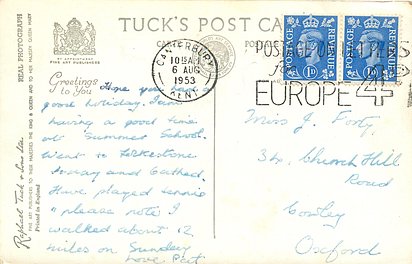 TUCK'S POST CARD
CANTERBURY
10 15 AM
6 AUG
1953
KENT
POSTAGE REVENUE
1D
POSTAGE REVENUE
EUROPE
REAL PHOTOGRAPH
BY APPOINTMENT
FINE ART PUBLISHERS
Greetings
to You
Hope you had a
good holiday. I am
having a good time
at Summer School.
Went to Folkestone
and Cathed.
Have played tennis
& please note I
walked about 12
miles on Sunday
Love Pat
Miss J. Forty
34 Church Hill
Road
Cowley
Oxford
Raphael Tuck & Sons Ltd
FINE ART PUBLISHERS TO THEIR MAJESTIES THE KING & QUEEN AND TO HER MAJESTY QUEEN MARY
Printed in England